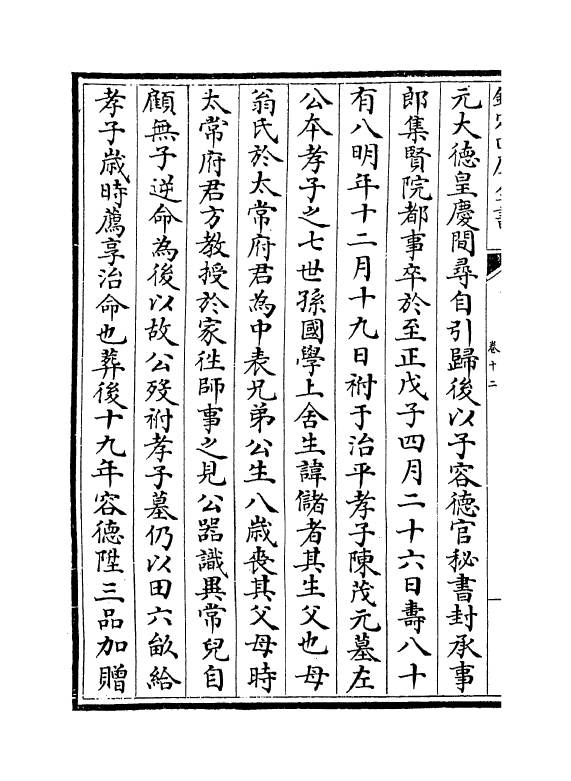 欽定四庫全書
卷十二
元大德皇慶間尋自引歸後以子容德官秘書封承事
郎集賢院都事卒於至正戊子四月二十六日壽八十
有八明年十二月十九日祔于治平孝子陳茂元墓左
公本孝子之七世孫國學上舍生諱儲者其生父也母
翁氏於太常府君為中表兄弟公生八歲喪其父母時
太常府君方教授於家徃師事之見公器識異常兒自
顧無子逆命為後以故公殁祔孝子墓仍以田六畝給
孝子歲時薦享治命也葬後十九年容德陞三品加贈